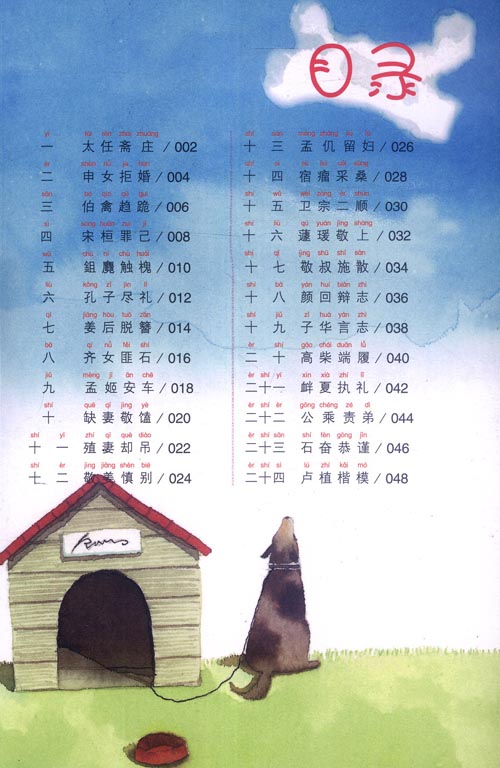 目录
yī tài rèn zhāi zhuāng
一 太任斋庄/002
èr shēn nǚ jù hūn
二 申女拒婚/004
sān bó qín qū guì
三 伯禽趋跪/006
sì sòng huán zuì jǐ
四 宋桓罪己/008
wǔ chú ní chù huái
五 鉏麑触槐/010
liù kǒng zǐ jìn lǐ
六 孔子尽礼/012
qī jiāng hòu tuō zān
七 姜后脱簪/014
bā qí nǚ fěi shí
八 齐女匪石/016
jiǔ mèng jī ān chē
九 孟姬安车/018
shí quē qī jìng yè
十 缺妻敬馌/020
shí yī zhí qī què diào
十一 殖妻却吊/022
shí èr jìng jiāng shèn bié
十二 敬姜慎别/024
shí sān mèng zhǎng jī liú fù
十三 孟仉留妇/026
shí sì sù liú cǎi sāng
十四 宿瘤采桑/028
shí wǔ wèi zōng èr shùn
十五 卫宗二顺/030
shí liù qú yuàn jìng shàng
十六 蘧瑗敬上/032
shí qī jìng shū shī sàn
十七 敬叔施散/034
shí bā yán huí biàn zhì
十八 颜回辩志/036
shí jiǔ zǐ huá yán zhì
十九 子华言志/038
èr shí gāo chái duān lǚ
二十 高柴端履/040
èr shí yī xìn xià zhí lǐ
二十一 衅夏执礼/042
èr shí èr gōng chéng zé dì
二十二 公乘责弟/044
èr shí sān shí fèn gōng jǐn
二十三 石奋恭谨/046
èr shí sì lú zhí kǎi mó
二十四 卢植楷模/048